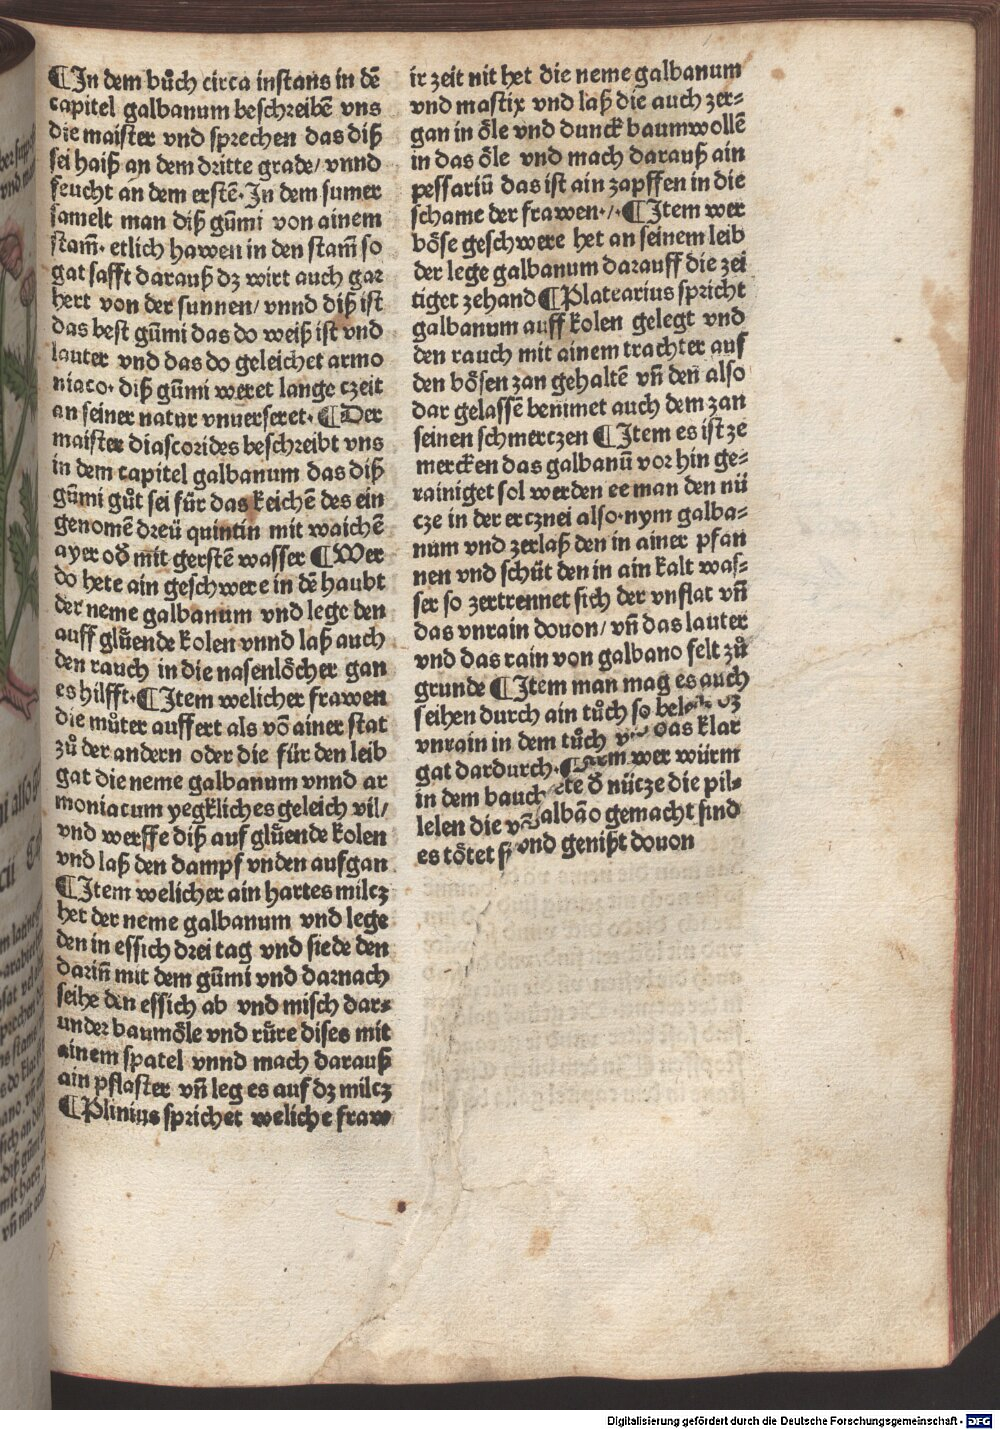 ¶In dem bůch circa instans in dē
capitel galbanum beschreibē vns
die maister vnd sprechen das diß
sei haiß an dem dritte grade/ vnnd
feucht an dem erstē· In dem sumer
samelt man diß gūmi von ainem
stam̄· etlich hawen in den stam̄ so
gat safft darauß dz wirt auch gar
hert von der sunnen/ vnnd diß ist
das best gūmi das do weiß ist vnd
lauter vnd das do geleichet armo
niaco· diß gūmi weret lange czeit
an seiner natur vnuerseret· ¶Der
maister diascorides beschreibt vns
in dem capitel galbanum das diß
gūmi gůt sei für das keichē des ein
genomē dreü quintin mit waichē
ayer oď mit gerstē wasser ¶Wer
do hete ain geschwere in dē haubt
der neme galbanum vnd lege den
auff glüende kolen vnnd laß auch
den rauch in die nasenlöcher gan
es hilfft· ¶Item welicher frawen
die můter auffert als vō ainer stat
zů der andern oder die für den leib
gat die neme galbanum vnnd ar
moniacum yegkliches geleich vil/
vnd werffe diß auf glüende kolen
vnd laß den dampf vnden aufgan
¶Item welicher ain hartes milcz
het der neme galbanum vnd lege
den in essich drei tag vnd siede den
darin̄ mit dem gūmi vnd darnach
seihe den essich ab vnd misch dar⸗
under baumöle vnd rüre dises mit
ainem spatel vnnd mach darauß
ain pflaster vn̄ leg es auf dz milcz
¶Plinius sprichet weliche fraw
ir zeit nit het die neme galbanum
vnd mastix vnd laß die auch zer⸗
gan in öle vnd dunck baumwollē
in das öle vnd mach darauß ain
pessariū das ist ain zapffen in die
schame der frawen·/· ¶Item wer
böse geschwere het an seinem leib
der lege galbanum darauff die zei
tiget zehand ¶Platearius spricht
galbanum auff kolen gelegt vnd
den rauch mit ainem trachter auf
den bösen zan gehaltē vn̄ den also
dar gelassē benimet auch dem zan
seinen schmerczen ¶Item es ist ze
mercken das galbanū vor hin ge⸗
rainiget sol werden ee man den nü
cze in der ercznei also· nym galba⸗
num vnd zerlaß den in ainer pfan
nen vnd schüt den in ain kalt was⸗
ser so zertrennet sich der vnflat vn̄
das vnrain douon/ vn̄ das lauter
vnd das rain von galbano felt zů
grunde ¶Item man mag es auch
seihen durch ain tůch so dz
vnrain in dem tůch das klar
gat dardurch· wer würm
in dem bauch ď nücze die pil⸗
lelen die albāo gemacht sind
es tötet vnd genißt douon
Digitalisierung gefördert durch die Deutsche Forschungsgemeinschaft - DFG